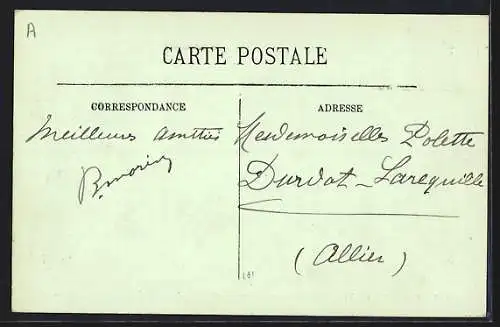 A
CARTE POSTALE
CORRESPONDANCE
Meilleures amitiés
B. morin
ADRESSE
Mesdemoiselles Polette
Durdat-Larequille
(Allier)